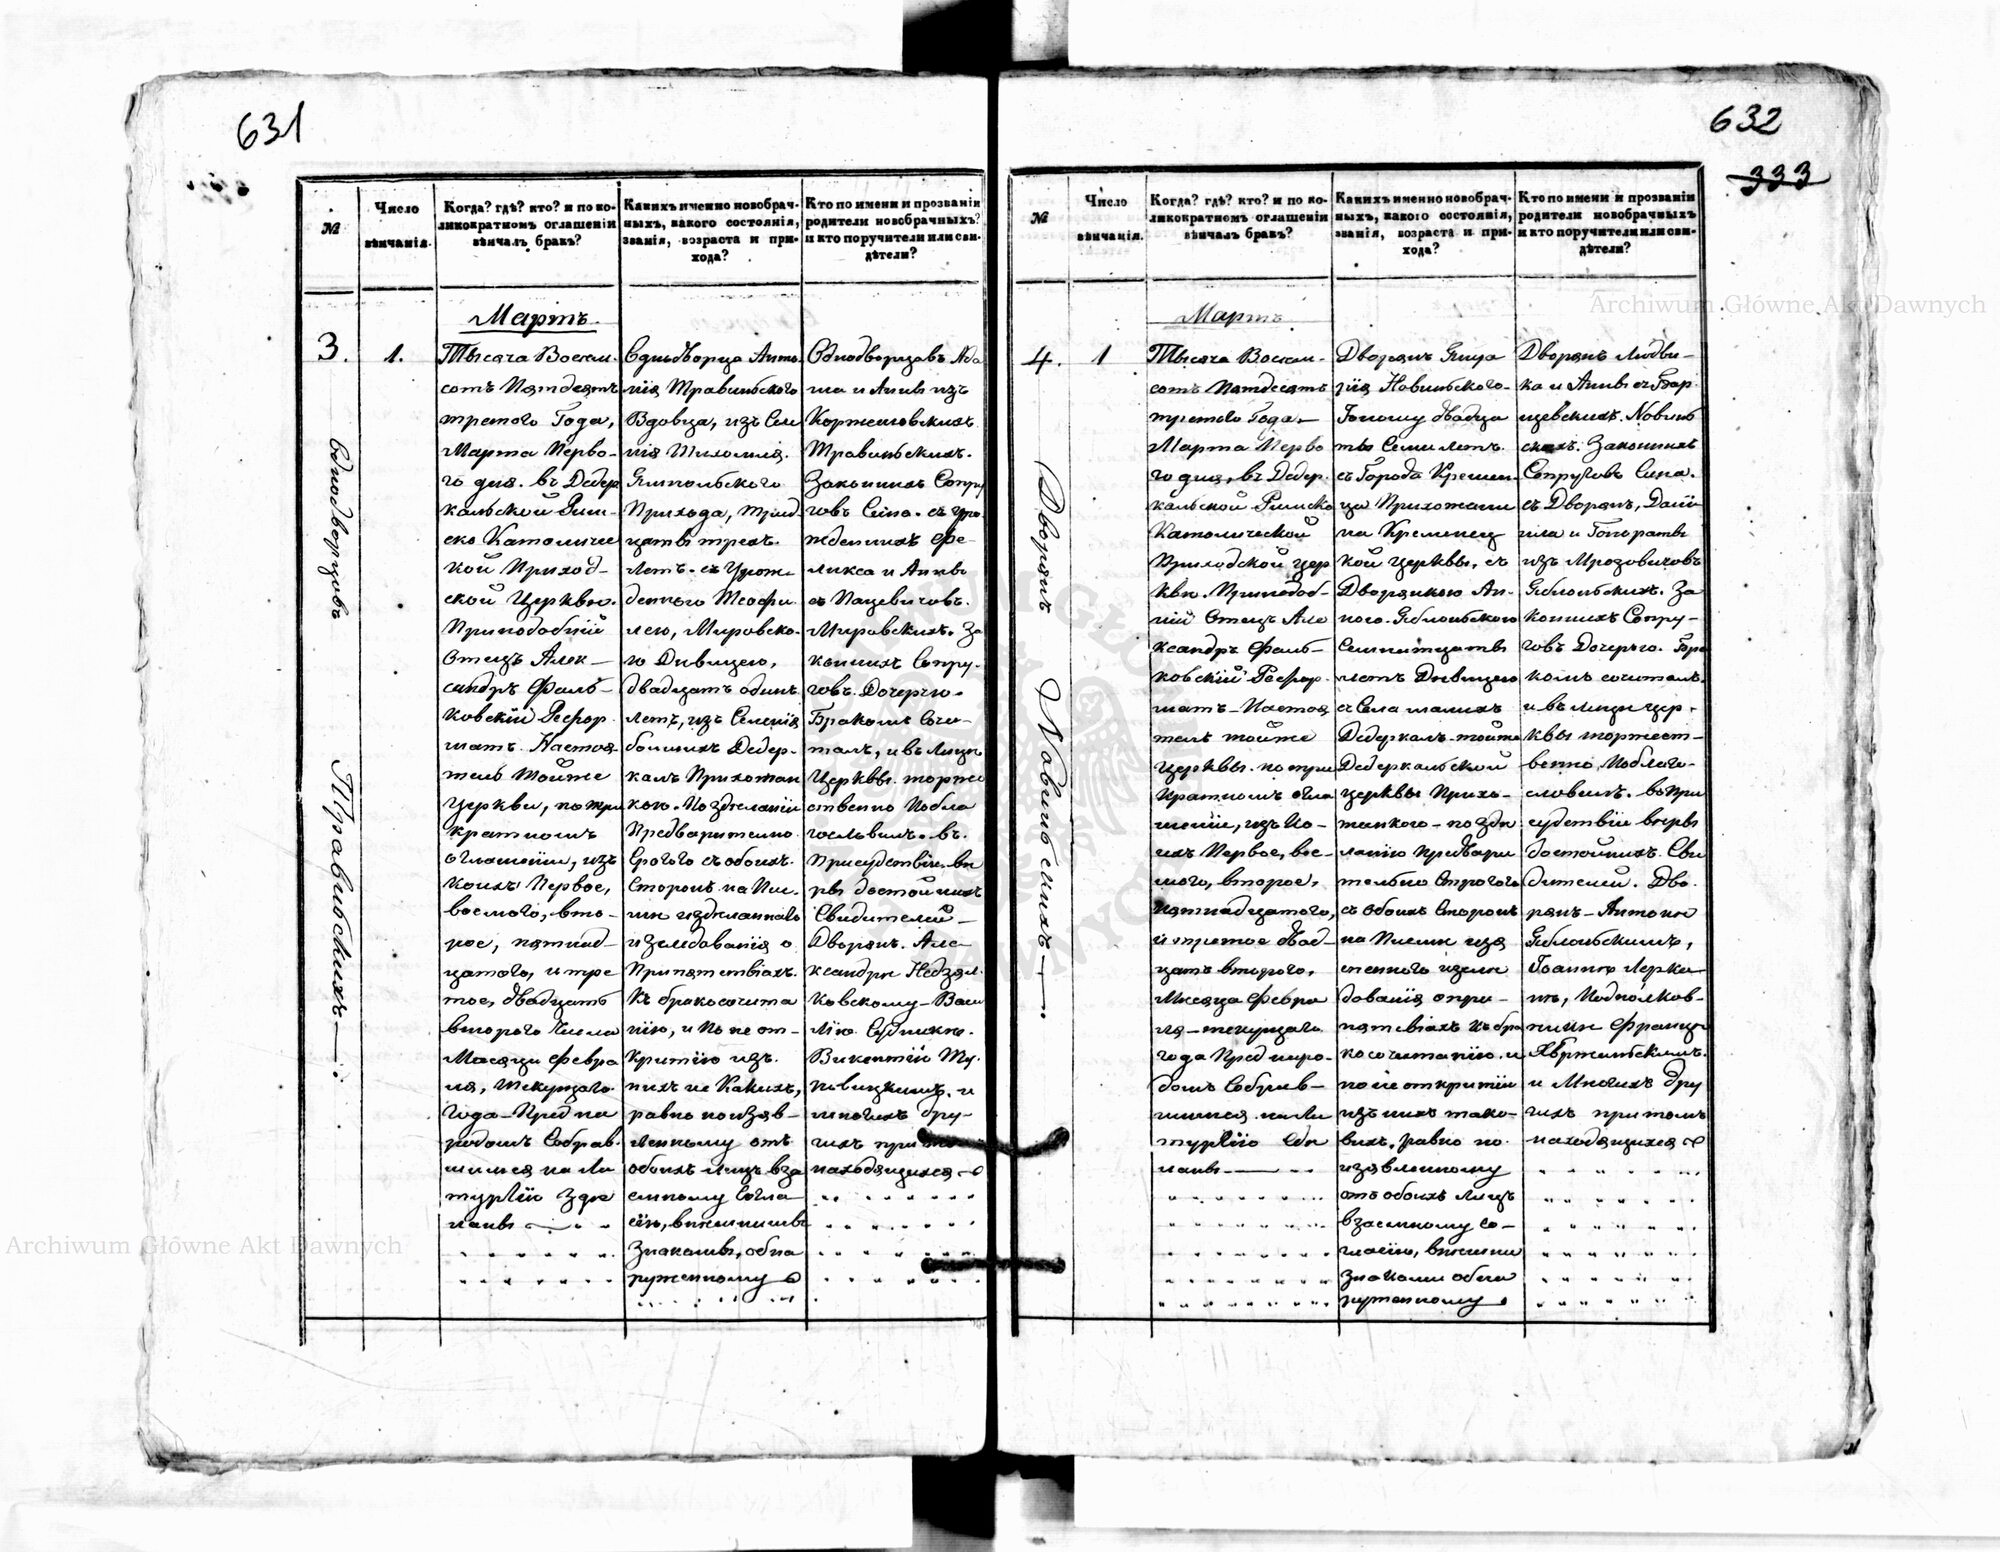 631
№
Число
вѣнчанія.
Когда? гдѣ? кто? и по ко-
ликократномъ оглашеніи
вѣнчалъ бракъ?
Какихъ именно новобрач-
ныхъ, какого состоянія,
званія, возраста и при-
хода?
Кто по имени и прозванію
родители новобрачныхъ?
и кто поручители или сви-
дѣтели?
Мартъ.
3.
1.
Однодворцовъ Травинскихъ
Тысяча Восем-
сотъ Пятдесятъ
третого Года,
Марта Перво-
го дня. въ Дедер
кальской Рим-
ско Католичес
кой Приход-
ской Церкви.
Приподобній
Отецъ Алек-
сандръ Фаль-
ковскій Рефор
матъ Настоя
тель тойже
Церкви, по три
кратномъ
оглашеніи, изъ
коихъ Первое,
восмого, вто-
рое, пятнад-
цатого, и тре
тое, двадцать
второго Числа
Месяца Февра
ля, текущаго
года Пред на
родомъ Собрав
шимся на Ли
тургію здѣ
ланы
Однодворца Анто
нія Травинского
Вдовца, изъ Сели
нія Тихомля.
Ямпольского
Прихода, трид
цать трехъ
летъ. съ Урож
денною Теофи
лею, Мировско-
ю Дивицею,
двадцать одинъ
летъ, изъ Селенія
большихъ Дедер-
калъ Прихожан
кою. По зделаніи
Предварително
Строгого съ обоихъ
Сторонъ на Пис-
ми изделаннаго
изследованія о
Припятствіахъ
Къ бракосочита
нію, и по не от-
критію изъ
нихъ не Какихъ,
равно по изяв-
ленному отъ
обоихъ лицъ вза
емному Согла
сію, внешними
Знаками, обна
руженному
Однодворцовъ Ада
ма и Анны изъ
Корженіовскихъ
Травинскихъ.
Законихъ Супру
говъ Сина. съ Уро
жденнихъ Фе-
ликса и Анны
съ Пацевичовъ.
Мировскихъ. За
конихъ Супру-
говъ Дочерью.
Бракомъ Соче-
талъ, и въ Лицы
Церквы торже
ственно Побла
гословилъ. въ
Присудствіи ви
ры достойнихъ
Свидителей
Дворянъ. Але-
ксандри Недзял
ковскому Васи
лію Суднику.
Викентій Ту-
повицкимъ. и
многихъ дру-
гихъ при томъ
находящихся
Archiwum Główne Akt Dawnych
632
333
№
Число
вѣнчанія.
Когда? гдѣ? кто? и по ко-
ликократномъ оглашеніи
вѣнчалъ бракъ?
Какихъ именно новобрач-
ныхъ, какого состоянія,
званія, возраста и при-
хода?
Кто по имени и прозванію
родители новобрачныхъ
и кто поручители или сви-
дѣтели?
Archiwum Główne Akt Dawnych
Мартъ
4.
1
Дворянъ Новинскихъ
Тысяча Восем-
сотъ Пятдесятъ
третого Года
Марта Перво
го дня, въ Дедер
кальской Римско
Католической
Приходской цер
кви. Приподоб-
ній Отецъ Але
ксандръ Фаль-
ковскій Рефор
матъ Настоя
тель тойже
Церквы. по три
кратномъ огла
шеніи, изъ Ко-
ихъ Первое, вос-
мого, второе,
пятнадцатого,
и третое двад-
цать второго,
Месяца Февра
ля текущаго
года Пред наро-
домъ Собрав-
шимся на Ли
тургію Здѣ
ланы
Дворянъ Игна
зія Новинского
Юному двадца
ты Семи летъ
съ Города Кремен
ца Прихожани
на Кременец
кой церквы, съ
Дворянкою Ан-
ною Яблонского
Семнатцаты
летъ Дивицею
с Села малихъ
Дедеркалъ тойже
Дедеркальской
церквы Прихо-
жанкого по зде
ланію Предвари
тельно Строгого
съ обоихъ Сторонъ
на Писми изя
сненного изсли
дованія о при-
пятвіахъ къ бра
косочитанію. и
по не откритіи
изъ нихъ тако-
вихъ. равно по
изявленному
отъ обоихъ Лицъ
взаемному со-
гласію, внешни
знаками обна
руженному
Дворянъ Людви-
ка и Анны съ Бар
щевскихъ. Новин
скихъ. Законихъ
Супруговъ Сина.
съ Дворянъ, Дани
ила и Гонораты
изъ Мрозовичовъ
Яблонскихъ. За
конихъ Супру-
говъ Дочерью. Бра
комъ сочиталъ
и въ лицы цер-
квы торжест-
венно Поблаго-
словилъ. въ При
судствіи виры
достойнихъ Сви
дителей. Дво
рянъ Антони
Яблонскимъ,
Іоанномъ Лерка
мъ, Подполков-
ники Францы
Хвржинскимъ.
и Многихъ дру
гихъ при томъ
находящихся